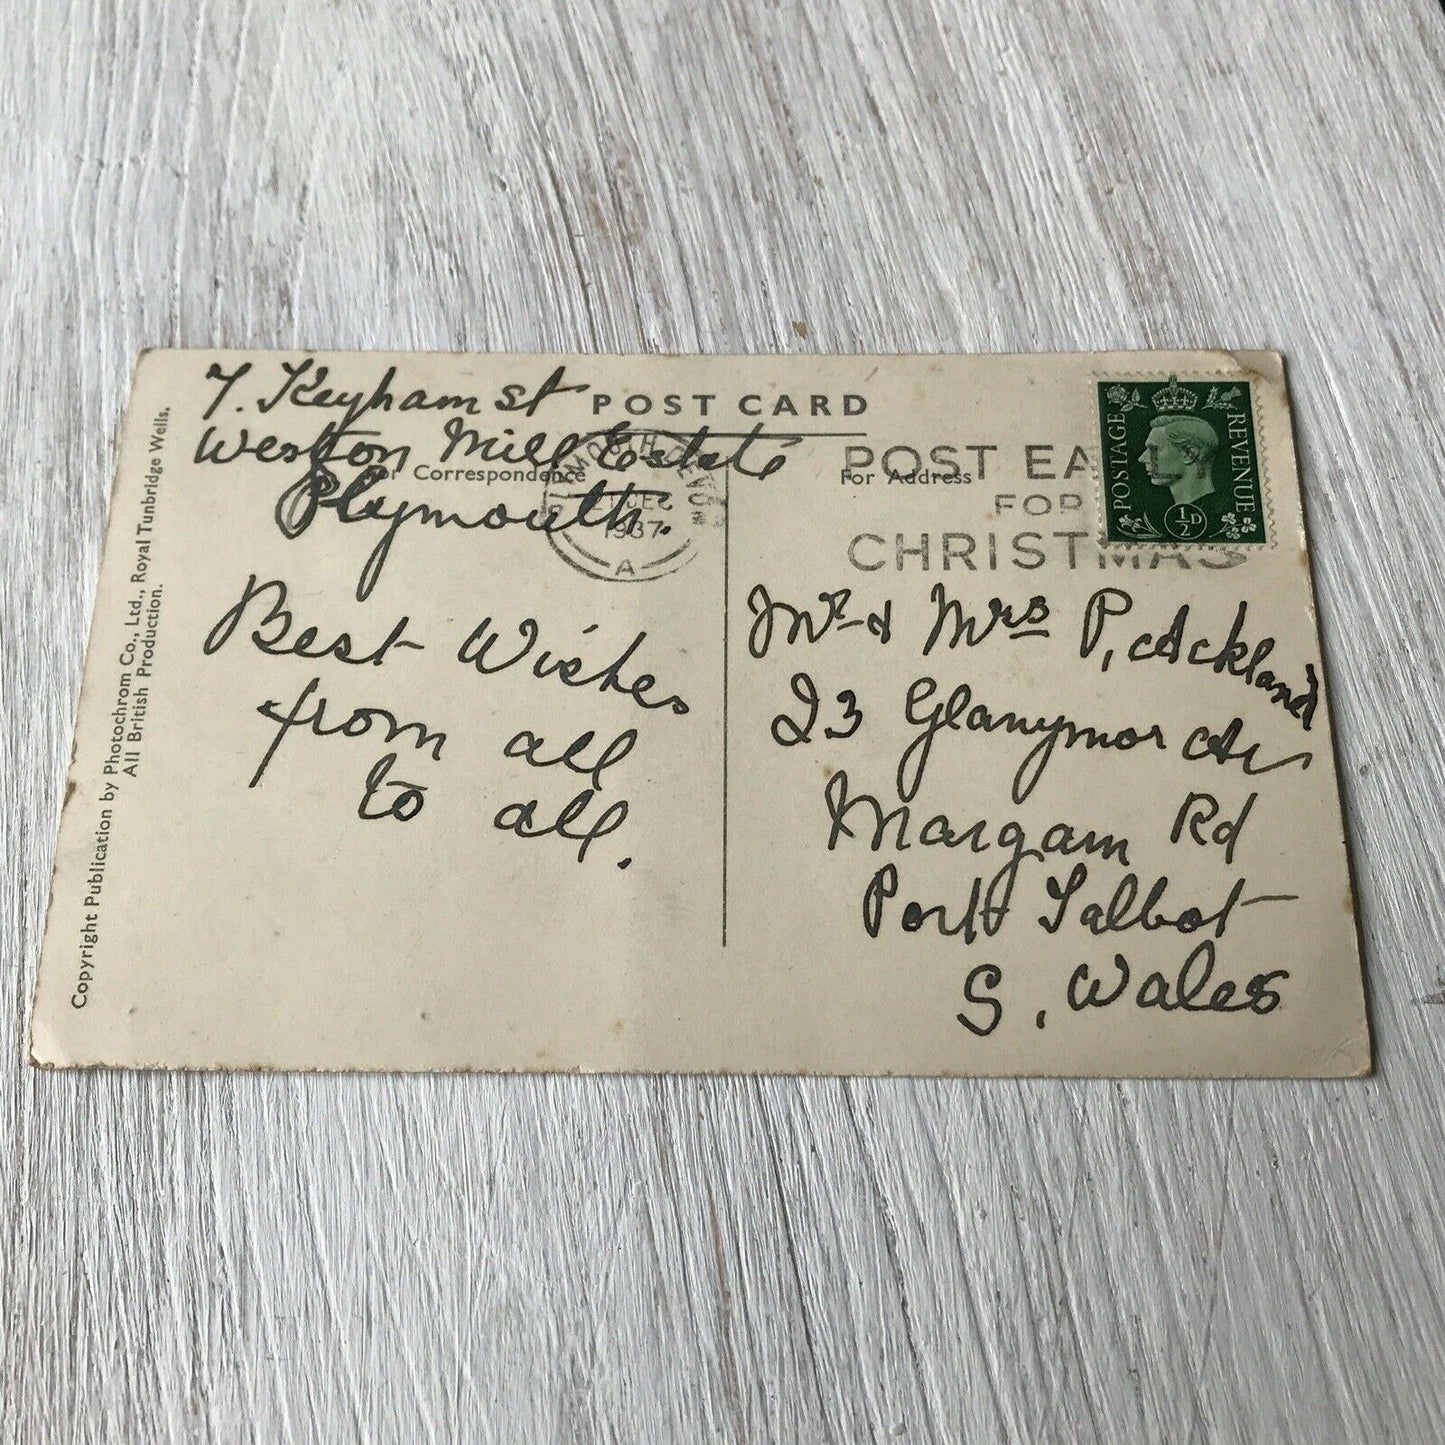 7. Keyham St
Weston Mill Estate
Plymouth.
Best Wishes
from all
to all.
POST CARD
For Correspondence
For Address
PLYMOUTH DEVON
DEC
1937
A
POST EARLY
FOR
CHRISTMAS
POSTAGE
REVENUE
½D
Mr & Mrs P, Ackland
23 Glanymor
Margam Rd
Port Talbot
S. Wales
Copyright Publication by Photochrom Co., Ltd., Royal Tunbridge Wells.
All British Production.